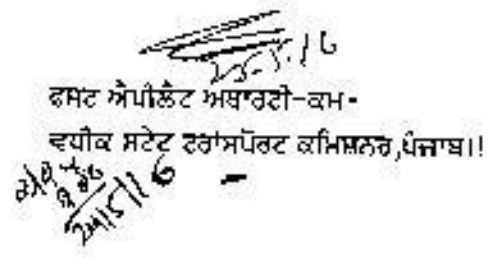 25.5.16
ਫਸਟ ਐਪੀਲੈਟ ਅਥਾਰਟੀ-ਕਮ-
ਵਧੀਕ ਸਟੇਟ ਟਰਾਂਸਪੋਰਟ ਕਮਿਸ਼ਨਰ,ਪੰਜਾਬ।।
24/5/16